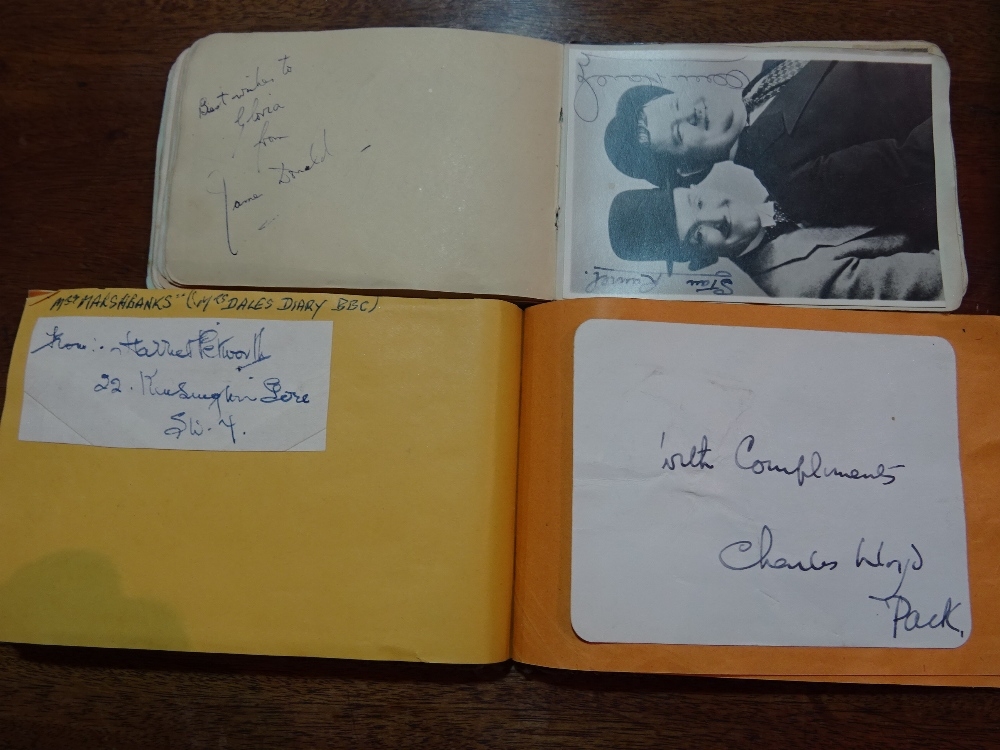 Best wishes to
Gloria
from
James Donald
Oliver Hardy
Stan Laurel.
"Mrs MARSHBANKS" (Mrs DALES DIARY BBC)
From:- Harriet Petworth
22. Kensington Gore
SW. 7.
With Compliments
Charles Lloyd
Pack.